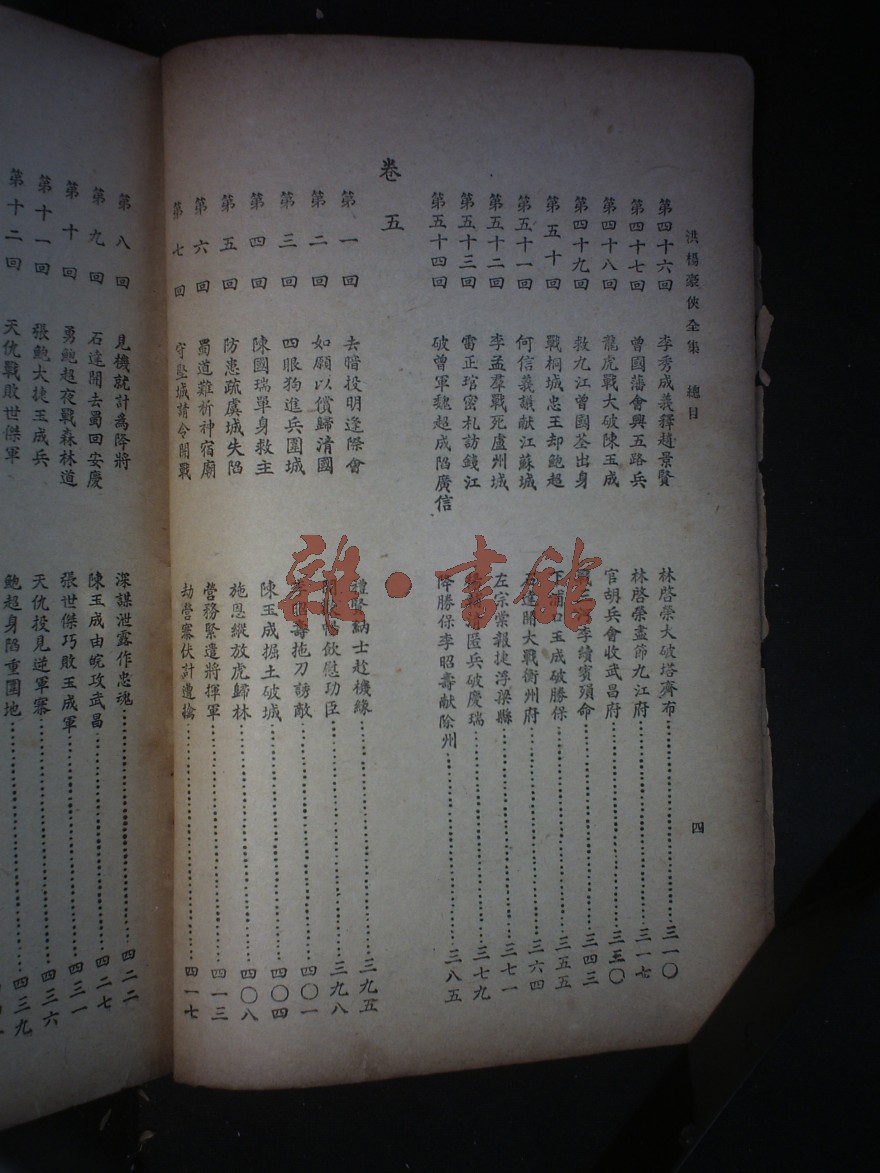 洪楊豪俠全集　總目
四
第四十六回　李秀成義釋趙景賢　林啓榮大破塔齊布……三一〇
第四十七回　曾國藩會興五路兵　林啓榮盡節九江府……三一七
第四十八回　龍虎戰大破陳玉成　官胡兵會收武昌府……三三〇
第四十九回　救九江曾國荃出身　李續賓殞命……三四三
第五十回　戰桐城忠王却鮑超　下浦口玉成破勝保……三五五
第五十一回　何信義議獻江蘇城　石達開大戰衡州府……三六四
第五十二回　李孟羣戰死廬州城　左宗棠報捷浮梁縣……三七一
第五十三回　雷正琯密札訪錢江　匿兵破慶瑞……三七九
第五十四回　破曾軍魏超成陷廣信　降勝保李昭壽献除州……三八五
卷五
第一回　去暗投明逢際會　禮賢納士趁機緣……三九五
第二回　如願以償歸清國　飲慰功臣……三九八
第三回　四眼狗進兵圍城　李昭壽拖刀誘敵……四〇一
第四回　陳國瑞單身救主　陳玉成掘土破城……四〇四
第五回　防患疏虞城失陷　施恩縱放虎歸林……四〇八
第六回　蜀道難祈神宿廟　營務緊遣將揮軍……四一三
第七回　守堅城請令開戰　劫營寨伏計遭擒……四一七
第八回　見機就計爲降將　深謀泄露作忠魂……四二二
第九回　石達開去蜀回安慶　陳玉成由皖攻武昌……四二七
第十回　勇鮑超夜戰森林道　張世傑巧敗玉成軍……四三一
第十一回　張鮑大捷玉成兵　天仇投見逆軍寨……四三六
第十二回　天仇戰敗世傑軍　鮑超身陷重圍地……四三九
雜·書館